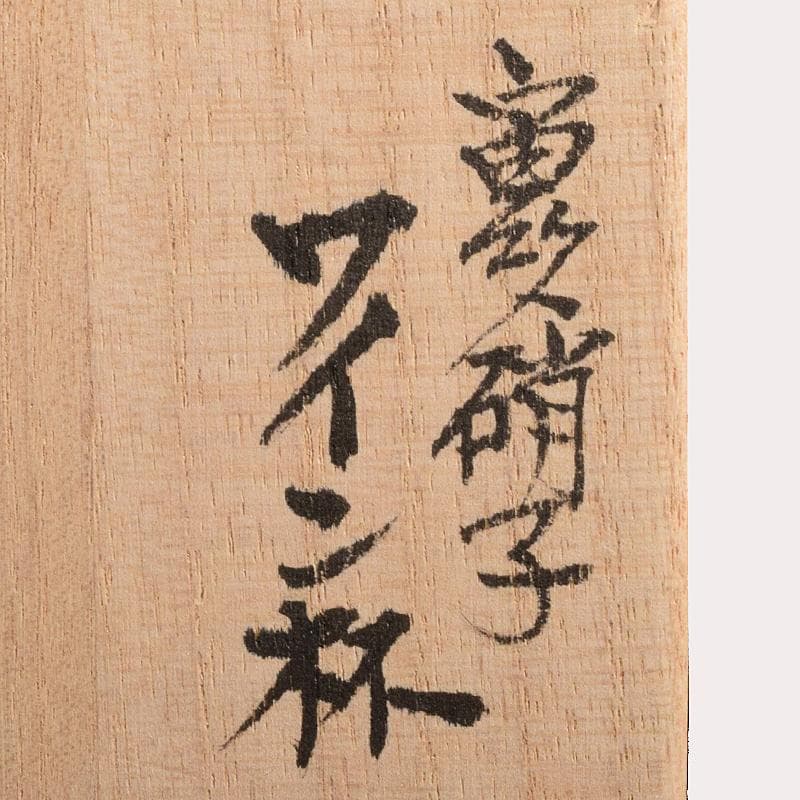 硝子
ワイン杯